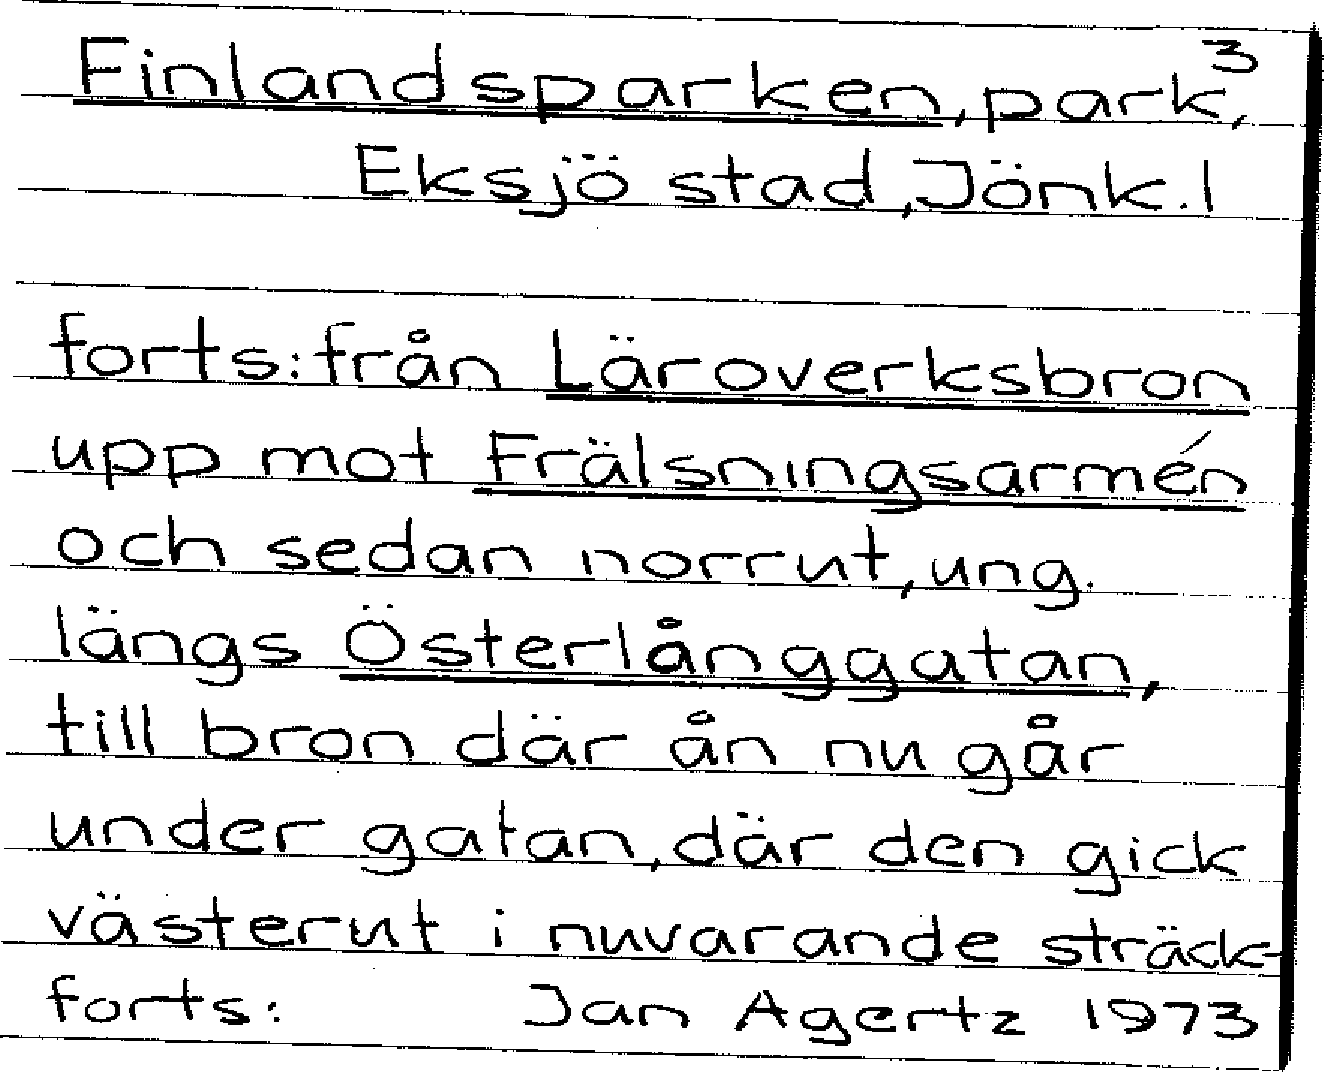 3
Finlandsparken, park,
Eksjö stad, Jönk. l
forts: från Läroverksbron
upp mot Frälsningsarmén
och sedan norrut, ung.
längs Österlånggatan,
till bron där ån nu går
under gatan, där den gick
västerut i nuvarande sträck-
forts: Jan Agertz 1973